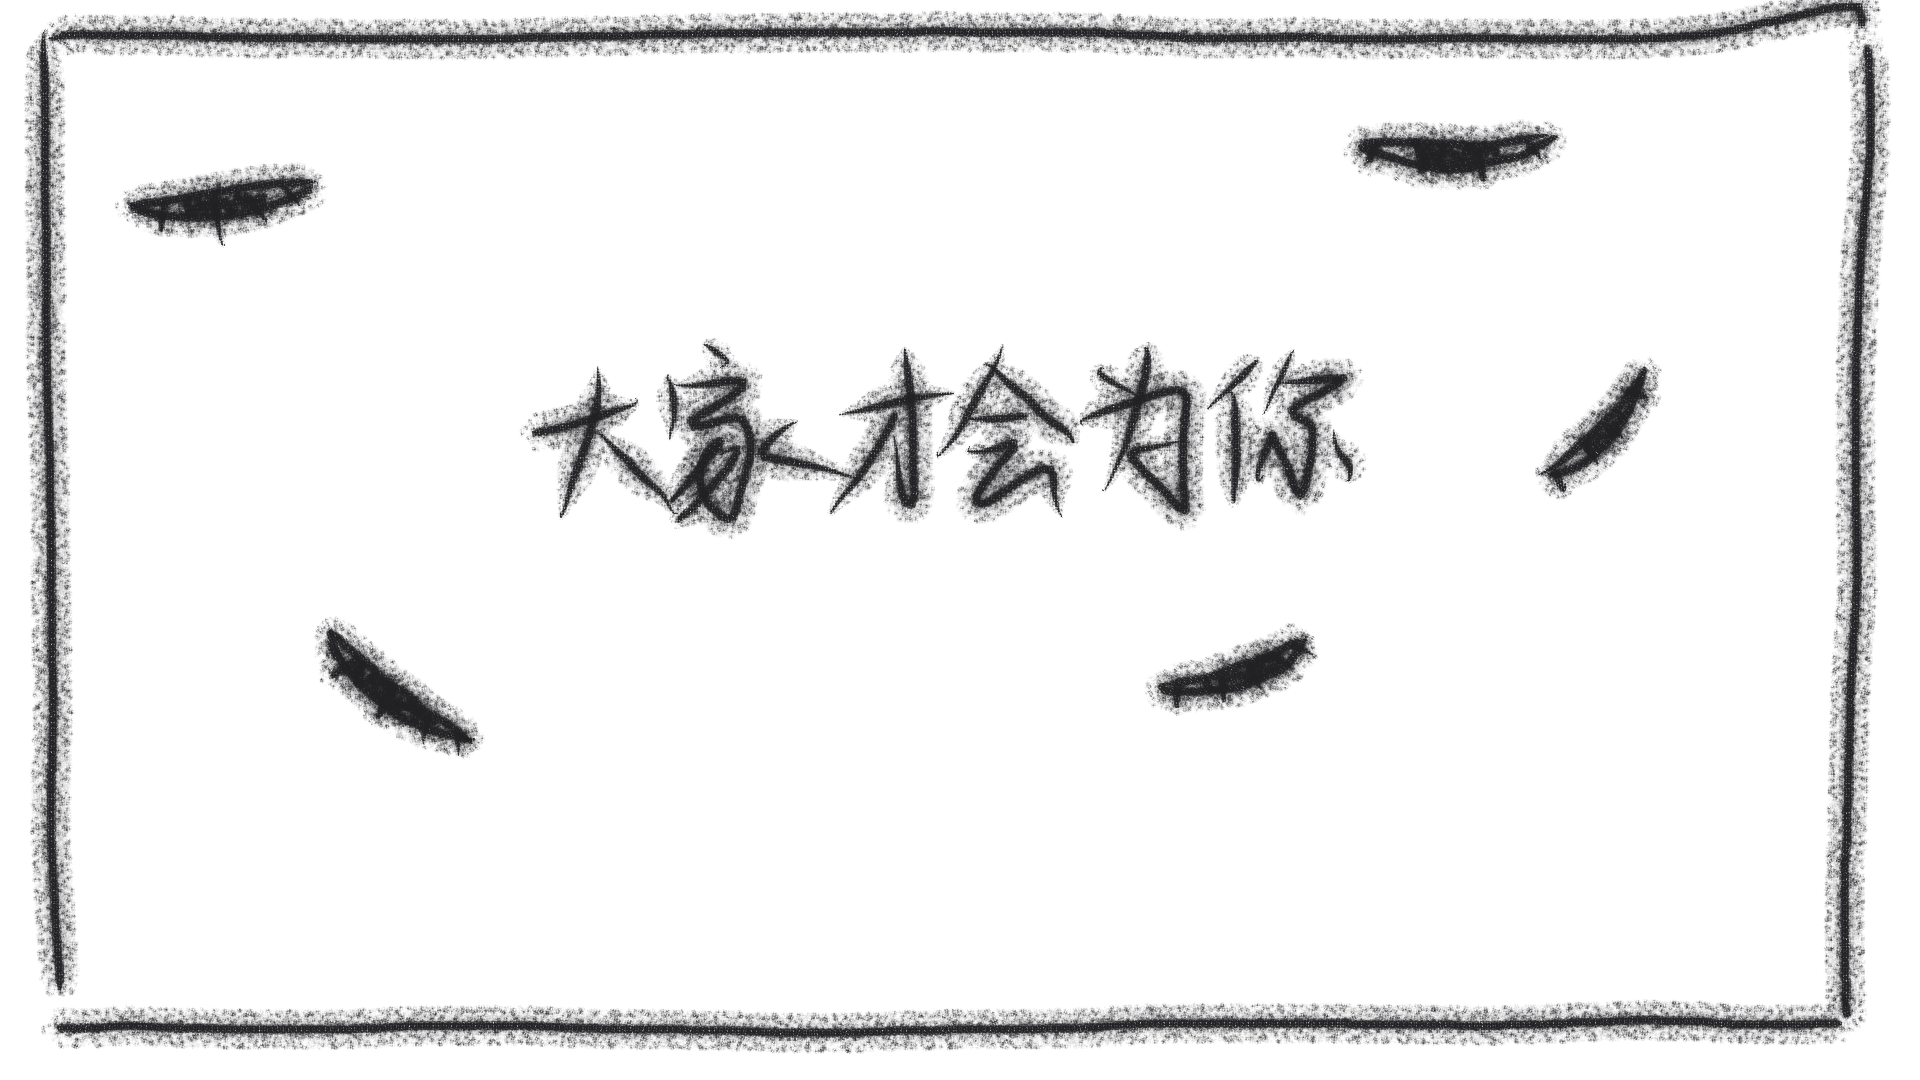 大家才会为你